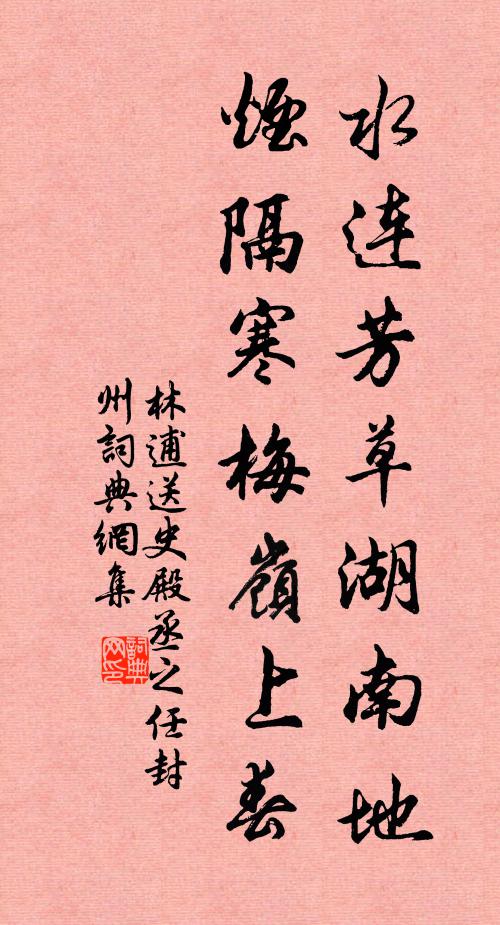 水連芳草湖南地
煙隔寒梅嶺上春
林逋送史殿丞之任封
州詞典網集
詞典
网印